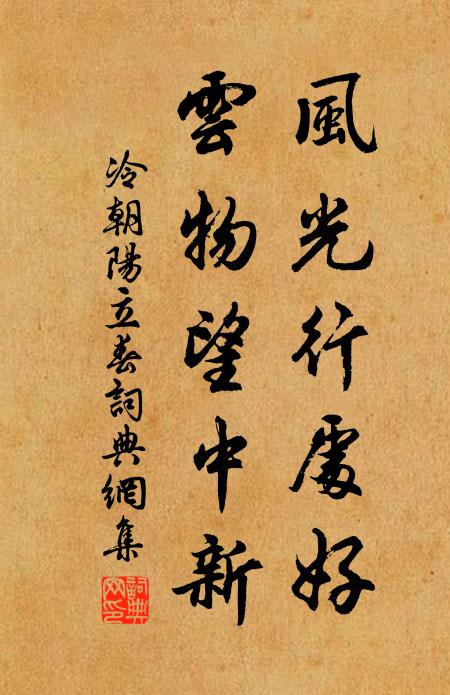 風光行處好
雲物望中新
冷朝陽立春詞典網集
詞典網印